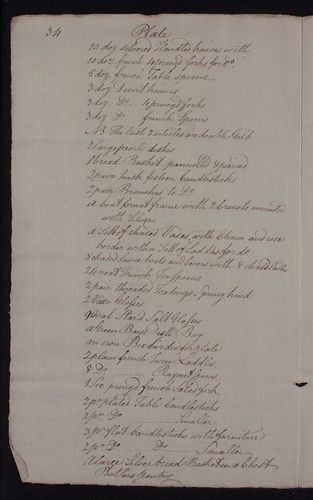 34 Plate
10 doz silvered Handled knives with
10 doz french 4 prong'd forks for do
5 doz french Table spoons
3 doz Desert knives
3 doz Do. 4 prong'd forks
3 doz Do french Spoons
NB The last 3 articles are double Gilt
2 large pearl dishes
1 bread Basket pannelld & pierced
2 pair festoon Candlesticks
2 pair Branches to Do.
a boat Cruet frame with 2 Cruets mounted
with Silver
a Sett of chased Vases, with Chain and rose
border with a Sett of Laddles for do
8 chased boats and Covers with 8 chased Ladles
24 French Tea spoons
2 pair threaded Tea tongs, Spring hend
2 Glasses
9 oval Salt Glasses
a Green Bays Bag
an iron Box for plate
2 plain french Laddles
8 Do Ragout spoons
1 Six prong'd french Salad fork
2 pr plated Table Candlesticks
2 pr Do Smaller
3 pr flat Candlesticks with furniture
2 pr Do Do Smaller
A large Silver bread Basket in a Chest
Butlers pantry